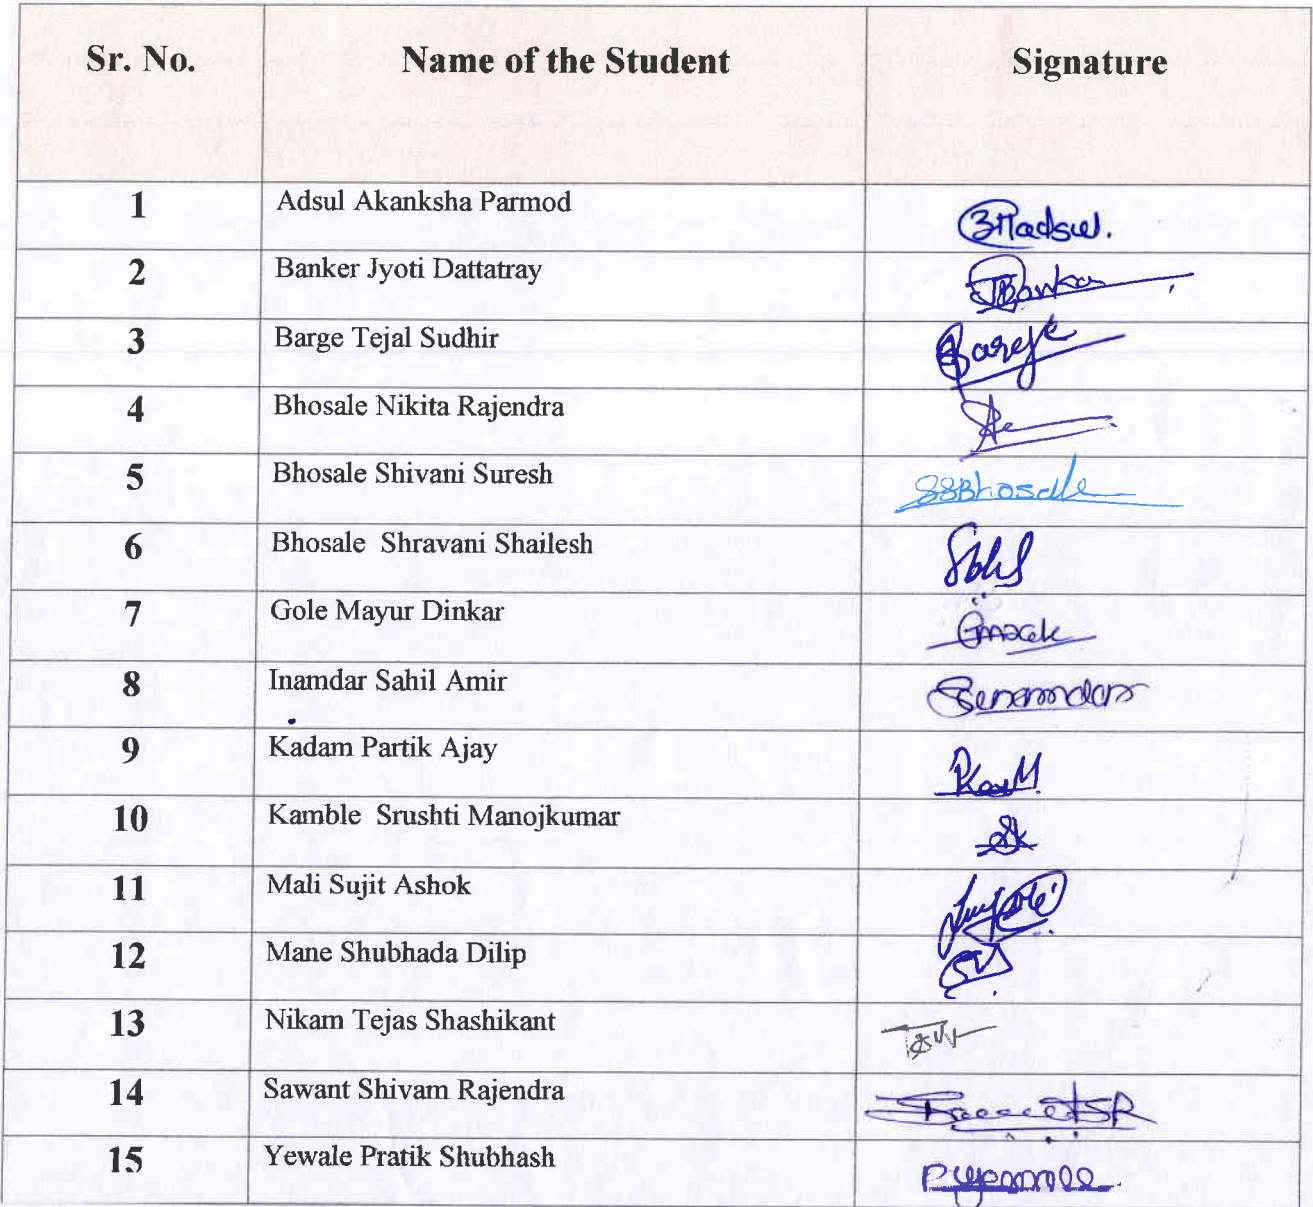 Sr. No. Name of the Student Signature
1 Adsul Akanksha Parmod
2 Banker Jyoti Dattatray
3 Barge Tejal Sudhir Barge
4 Bhosale Nikita Rajendra
5 Bhosale Shivani Suresh SSBhosale
6 Bhosale Shravani Shailesh
7 Gole Mayur Dinkar
8 Inamdar Sahil Amir
9 Kadam Partik Ajay
10 Kamble Srushti Manojkumar
11 Mali Sujit Ashok
12 Mane Shubhada Dilip
13 Nikam Tejas Shashikant
14 Sawant Shivam Rajendra
15 Yewale Pratik Shubhash